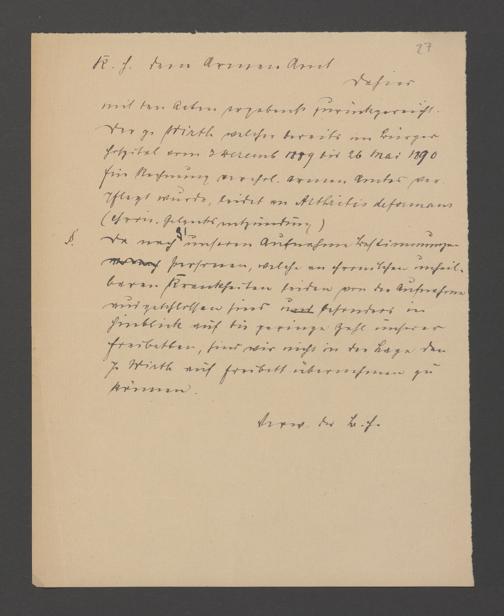 27
K. H. dem Armen Amt
Dahier
mit den Acten ergebenst zurückgereicht.
Der p. Wirth welcher bereits im Bürger
hospital vom 7 Decemb 1889 bis 26 Mai 1890
für Rechnung verehrl. Armen Amtes ver-
pflegt wurde, leidet an Arthritis deformans
(chron. Gelenksentzündung)
Da nach § 1 unseren Aufnahme Bestimmungen
Personen, welche an chronischen unheil-
baren Krankheiten leiden von der Aufnahme
ausgeschlossen sind und besonders im
Hinblick auf die geringe Zahl unserer
Freibetten, sind wir nicht in der Lage den
p. Wirth auf Freibett übernehmen zu
können.
Verw. des B. H.